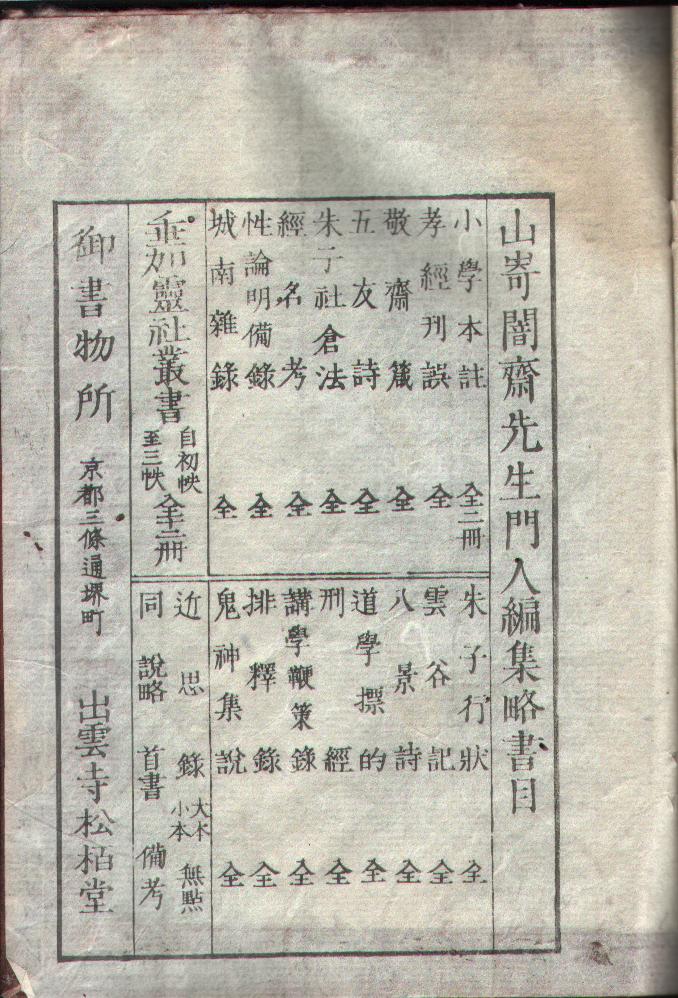 山嵜闇齋先生門人編集略書目
小學本註 全二冊
孝經刊誤 全
敬齋箴 全
五友詩 全
朱子社倉法 全
經名考 全
性論明備錄 全
城南雜錄 全
朱子行狀 全
雲谷記 全
八景詩 全
道學摽的 全
刑經 全
講學鞭策錄 全
排釋錄 全
鬼神集說 全
垂加靈社叢書 自初帙至三帙 全十二冊
近思錄 大本小本 無點
同 說略 首書 備考
御書物所 京都三條通堺町 出雲寺松栢堂